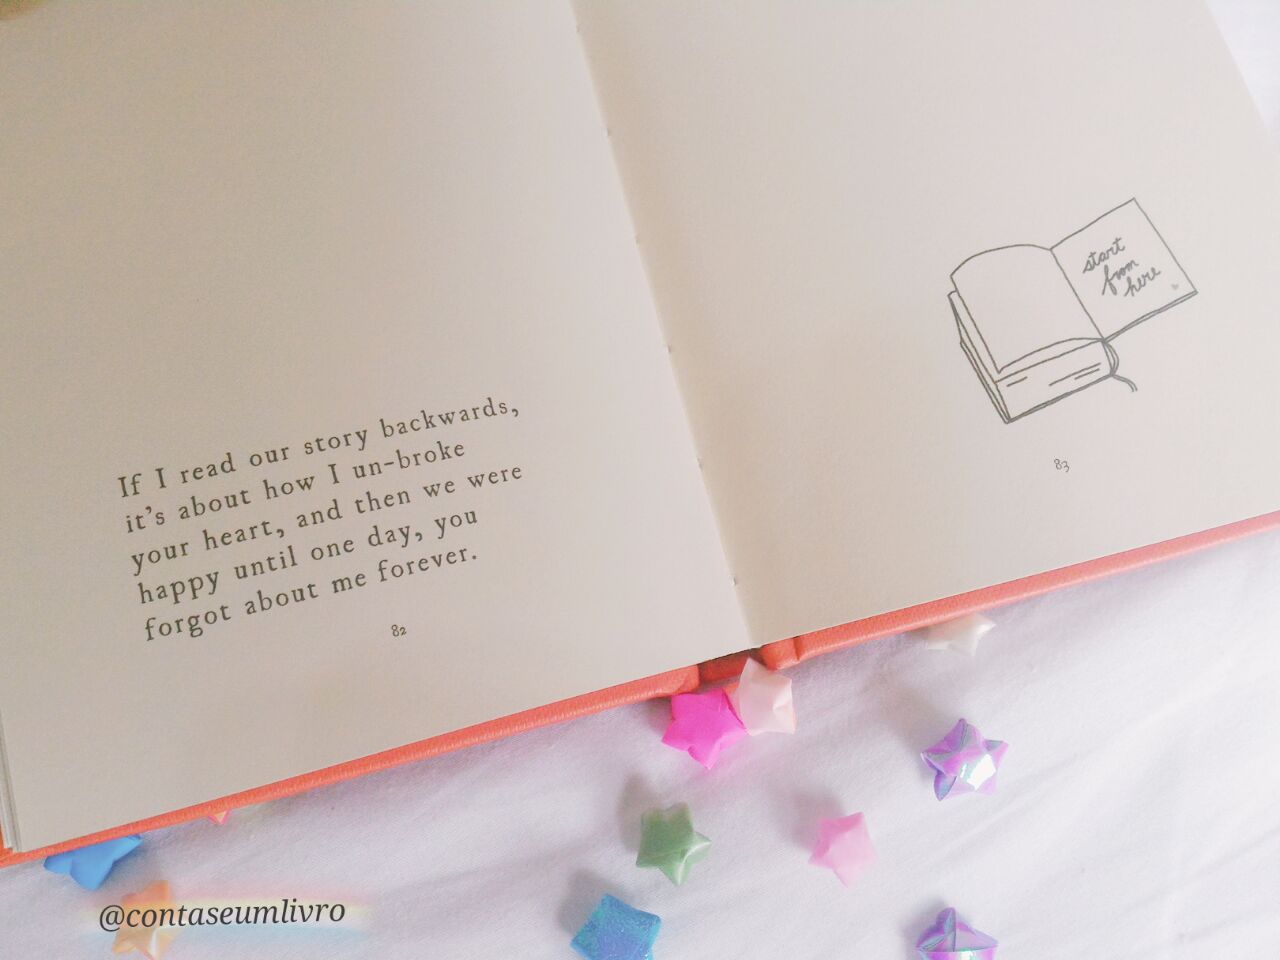 If I read our story backwards,
it's about how I un-broke
your heart, and then we were
happy until one day, you
forgot about me forever.
82
start
from
here
83
@contaseumlivro